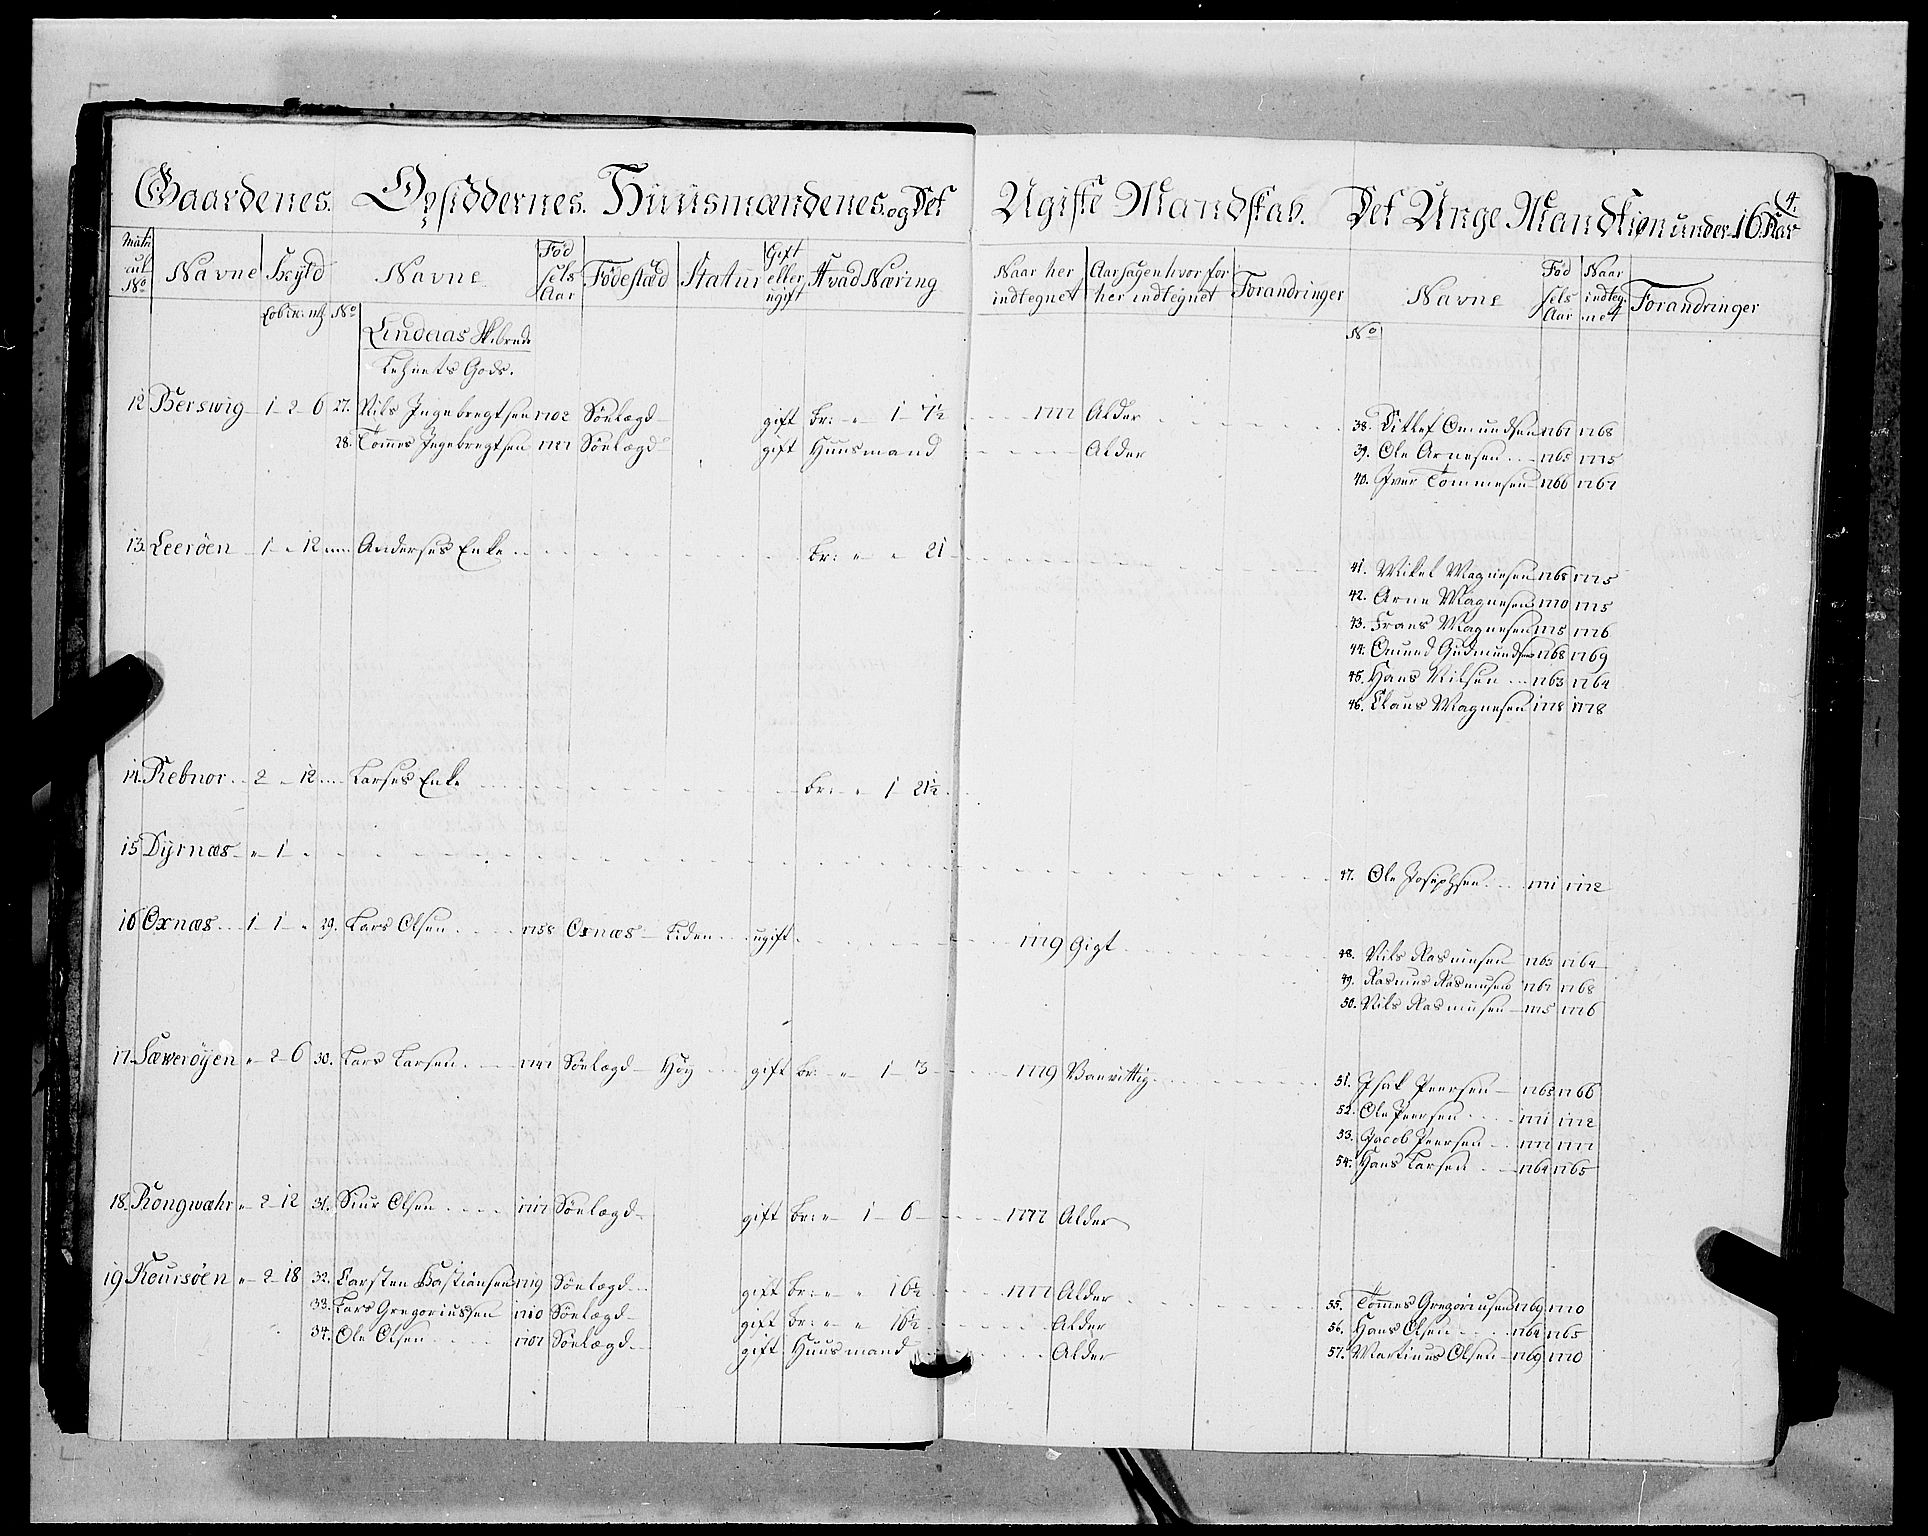 Gaardenes. Opsiddernes. Huusmændenes. og Det Ugifte Mandskab. Det Unge Mandkiøn under 16 Aar
4.
Matricul No Navne Skyld Navne Fødsels Aar Fødestæd Statur Gift eller ugift Hvad Næring Naar her indtegnet Aarsagen hvorfor her indtegnet Forandringer Navne Fødsels Aar Naar indteg net Forandringer
No No
Lindaas Skibrede
Lehnets Gods.
12 Berswig 1 2 6 27. Nils Ingebregtsen 1702 Sönlægd gift br: " 1 7½ 1777 Alder 38. Ditlef Omundsen 1767 1768
28. Tommes Ingebregtsen 1727 Sönlægd gift Huusmand Alder 39. Ole Arnesen 1765 1775
40. Iver Tommesen 1766 1767
13. Leeröen 1 " 12 Anderses Enke br: " " 21
41. Mikel Magnesen 1768 1775
42. Arne Magnesen 1770 1775
43. Frans Magnesen 1775 1776
44. Omund Gudmundsen 1768 1769
45. Hans Nilsen 1763 1764
46. Claus Magnesen 1778 1778
14. Rebnor 2 " 12 Larses Enke br: " 1 21½
15 Dyrnæs " 1 " 47. Ole Josephsen 1771 1772
16 Oxnæs 1 1 " 29. Lars Olsen 1758 Oxnæs Liden ugift 1779 Gigt 48. Nils Rasmusen 1763 1764
49. Rasmus Rasmusen 1767 1768
50. Nils Rasmusen 1775 1776
17. Sæweröyen " 2 6 30. Lars Larsen 1747 Sönlægd Höy gift br: " 1 3 1779 Vanvittig 51. Isak Peersen 1765 1766
52. Ole Peersen 1771 1772
53. Jacob Peersen 1777 1777
54. Hans Larsen 1764 1765
18. Rongwæhr " 2 12 31. Siur Olsen 1717 Sönlægd gift br: " 1 6 1777 Alder
19 Koursöen " 2 18 32. Carsten Bastiansen 1719 Sönlægd gift br: " " 16½ 1777 Alder 55. Tommes Gregoriusen 1769 1770
33. Lars Gregoriussen 1710 Sönlægd gift br: " " 16½ Alder 56. Hans Olsen 1764 1765
34. Ole Olsen 1707 Sönlægd gift Huusmand Alder 57. Martinus Olsen 1769 1770